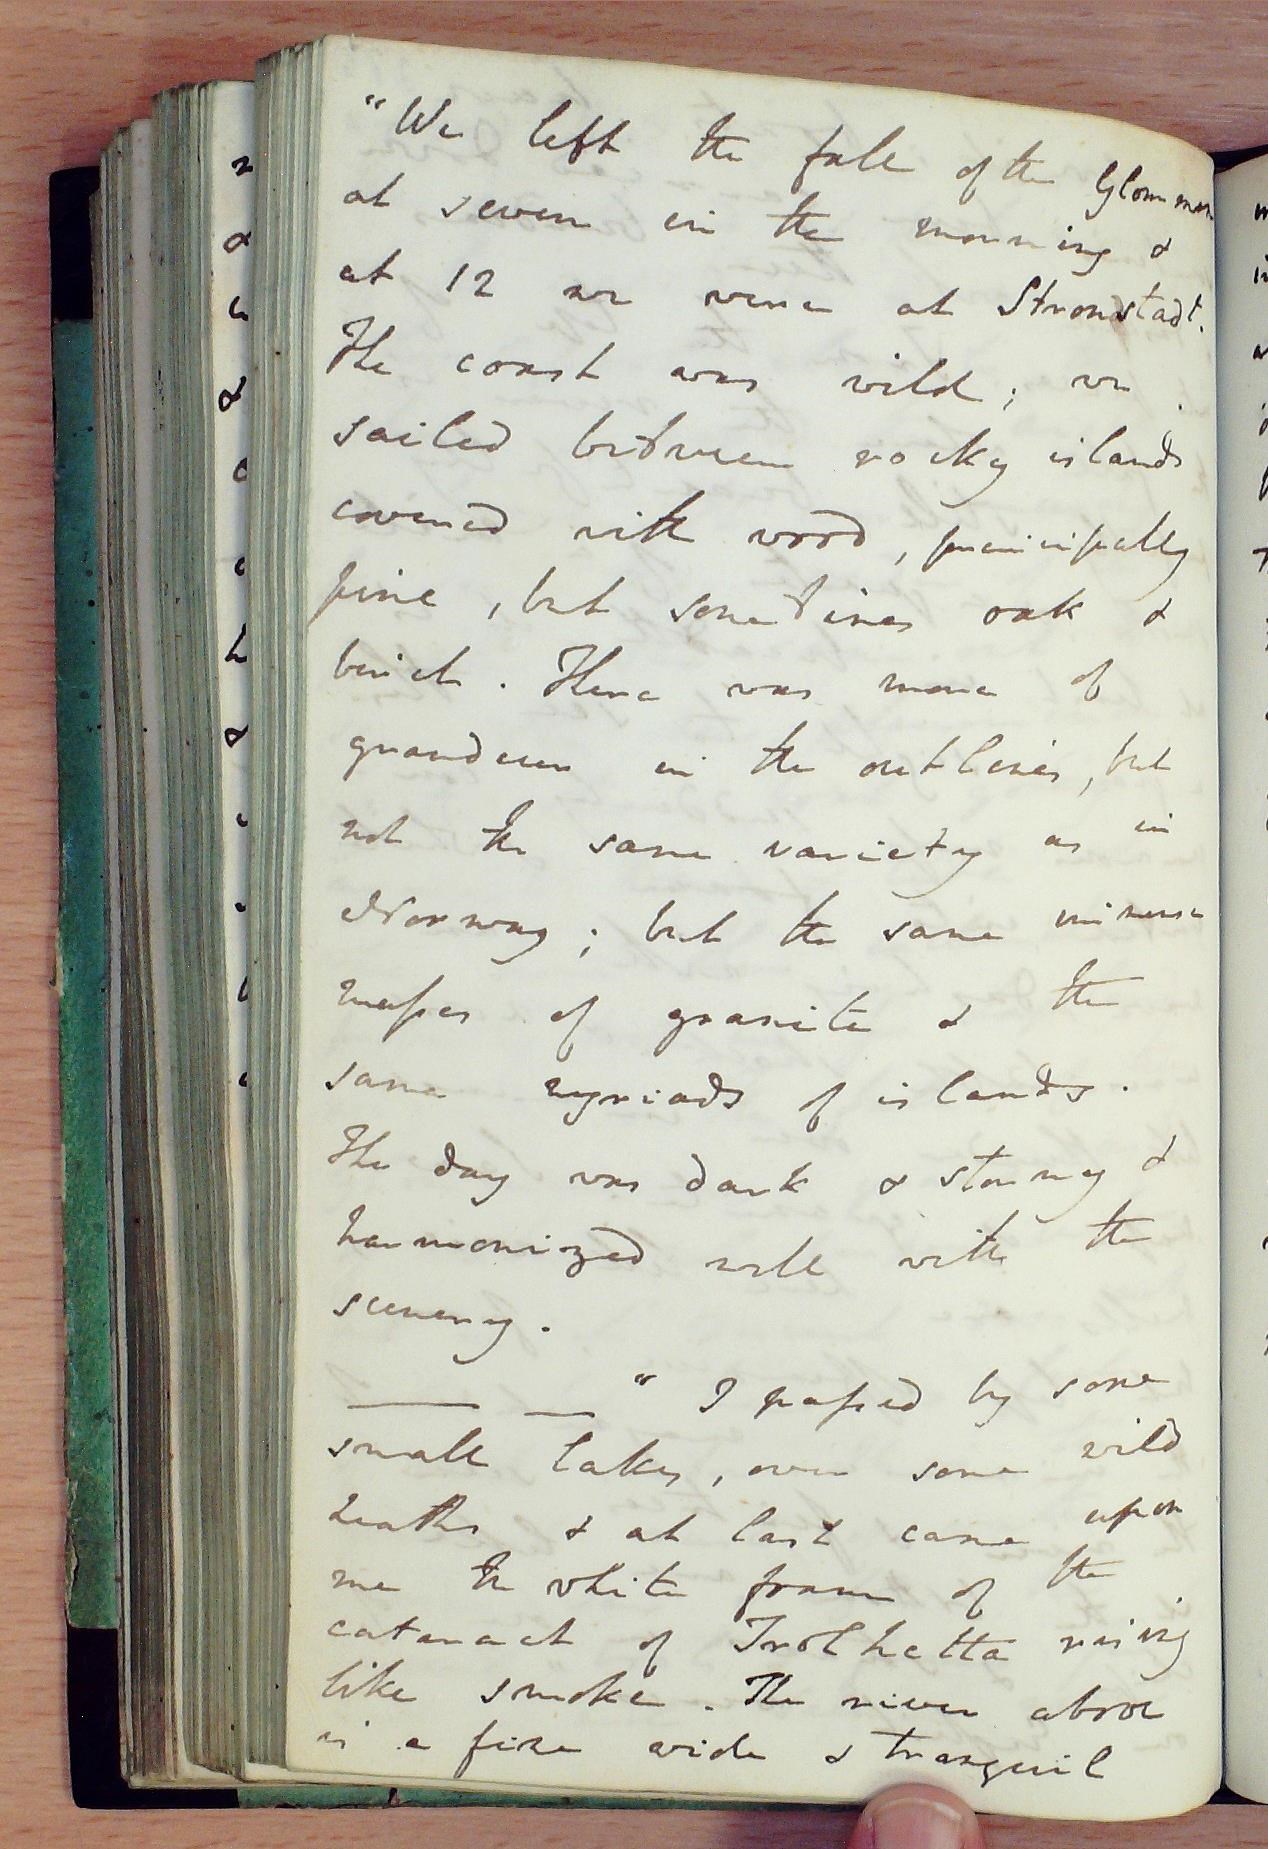 "We left the fall of the Glommen
at seven in the morning &
at 12 we were at Stromstadt.
The coast was wild; we
sailed between rocky islands
covered with wood, principally
pine, but sometimes oak &
birch. There was more of
grandeur in the outlines, but
not the same variety as in
Norway; but the same immense
masses of granite & the
same myriads of islands.
The day was dark & stormy &
harmonized well with the
scenery.
——— — " I passed by some
small lakes, over some wild
heaths & at last came upon
me the white foam of the
cataract of Trolhetta rising
like smoke. The river above
is a fine wide & tranquil